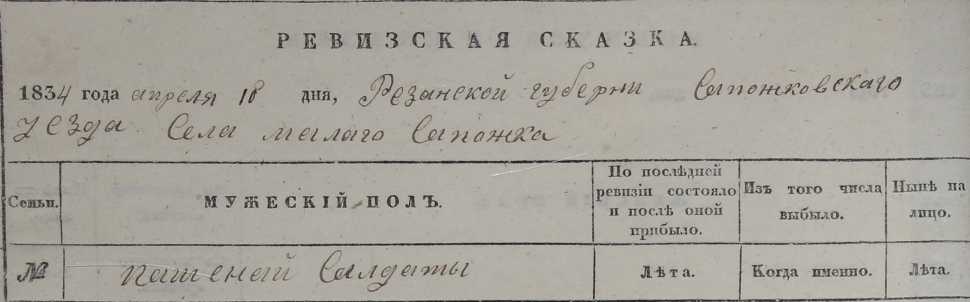 РЕВИЗСКАЯ СКАЗКА.
1834 года апреля 18 дня, Резанской губерни Сапожковскаго
уезда Села малаго Сапожка
Семьи.
МУЖЕСКІЙ ПОЛЪ.
По послѣдней
ревизіи состояло
и послѣ оной
прибыло.
Изъ того числа
выбыло.
Нынѣ на
лицо.
№
пашеный Салдаты
Лѣта.
Когда именно.
Лѣта.